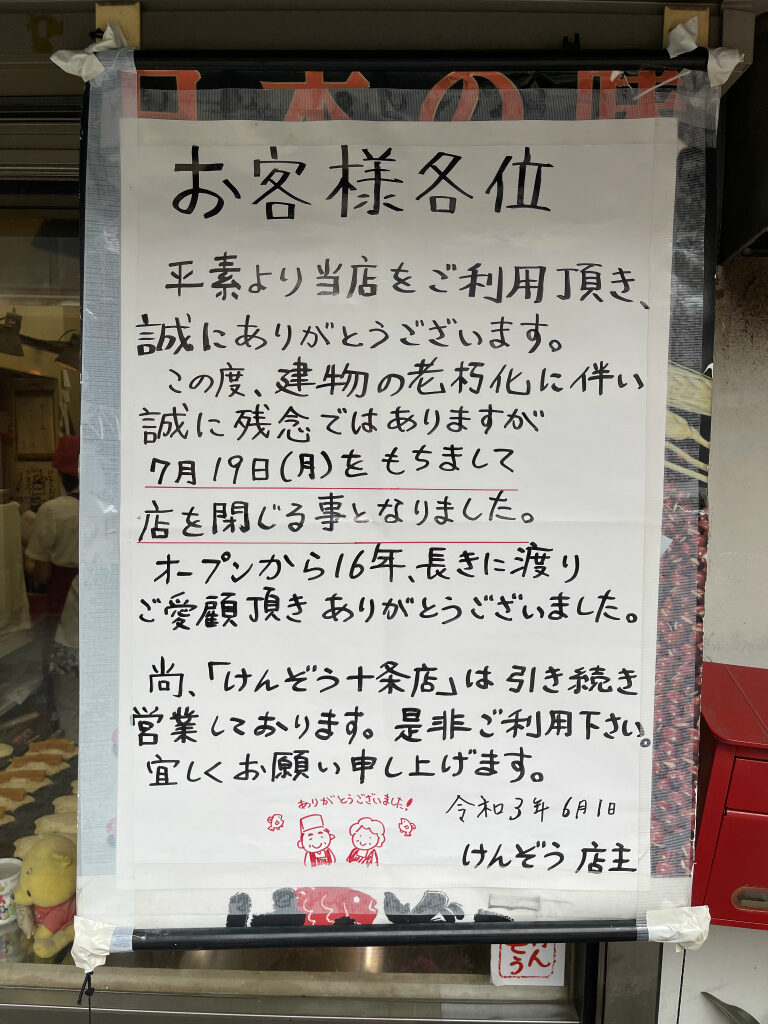 日本の味
お客様各位
平素より当店をご利用頂き、
誠にありがとうございます。
この度、建物の老朽化に伴い
誠に残念ではありますが
7月19日(月)をもちまして
店を閉じる事となりました。
オープンから16年、長きに渡り
ご愛顧頂きありがとうございました。
尚、「けんぞう十条店」は引き続き
営業しております。是非ご利用下さい。
宜しくお願い申し上げます。
ありがとうございました!
令和3年6月1日
けんぞう店主